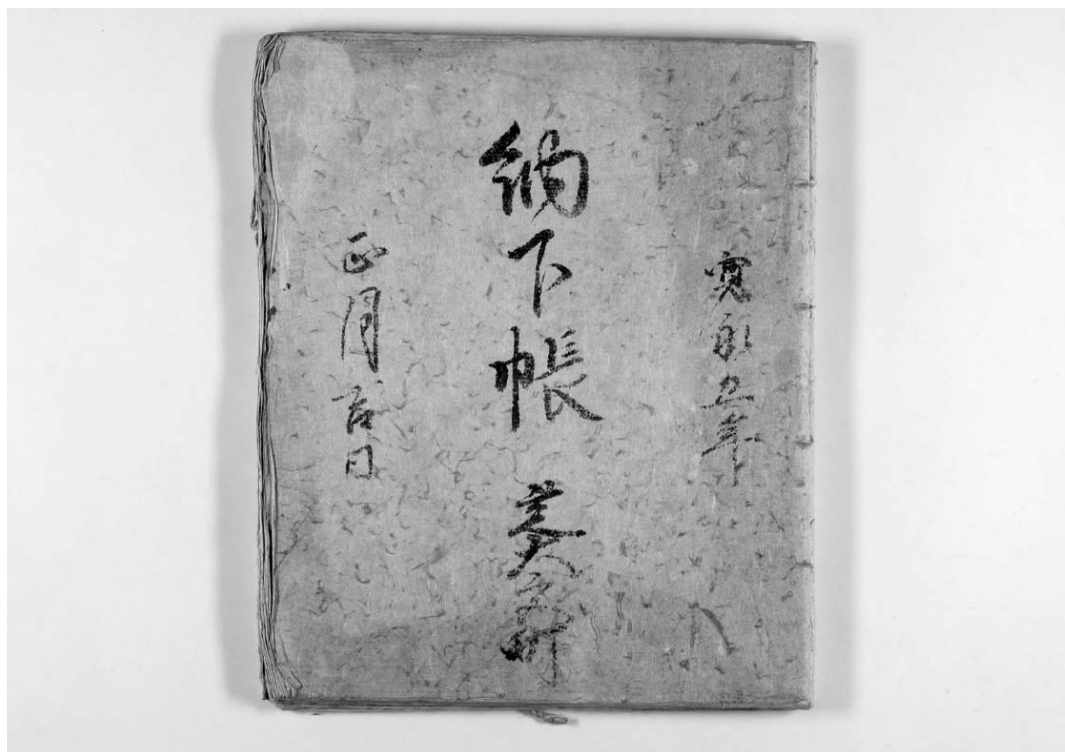 寛永五年
納下帳
正月吉日